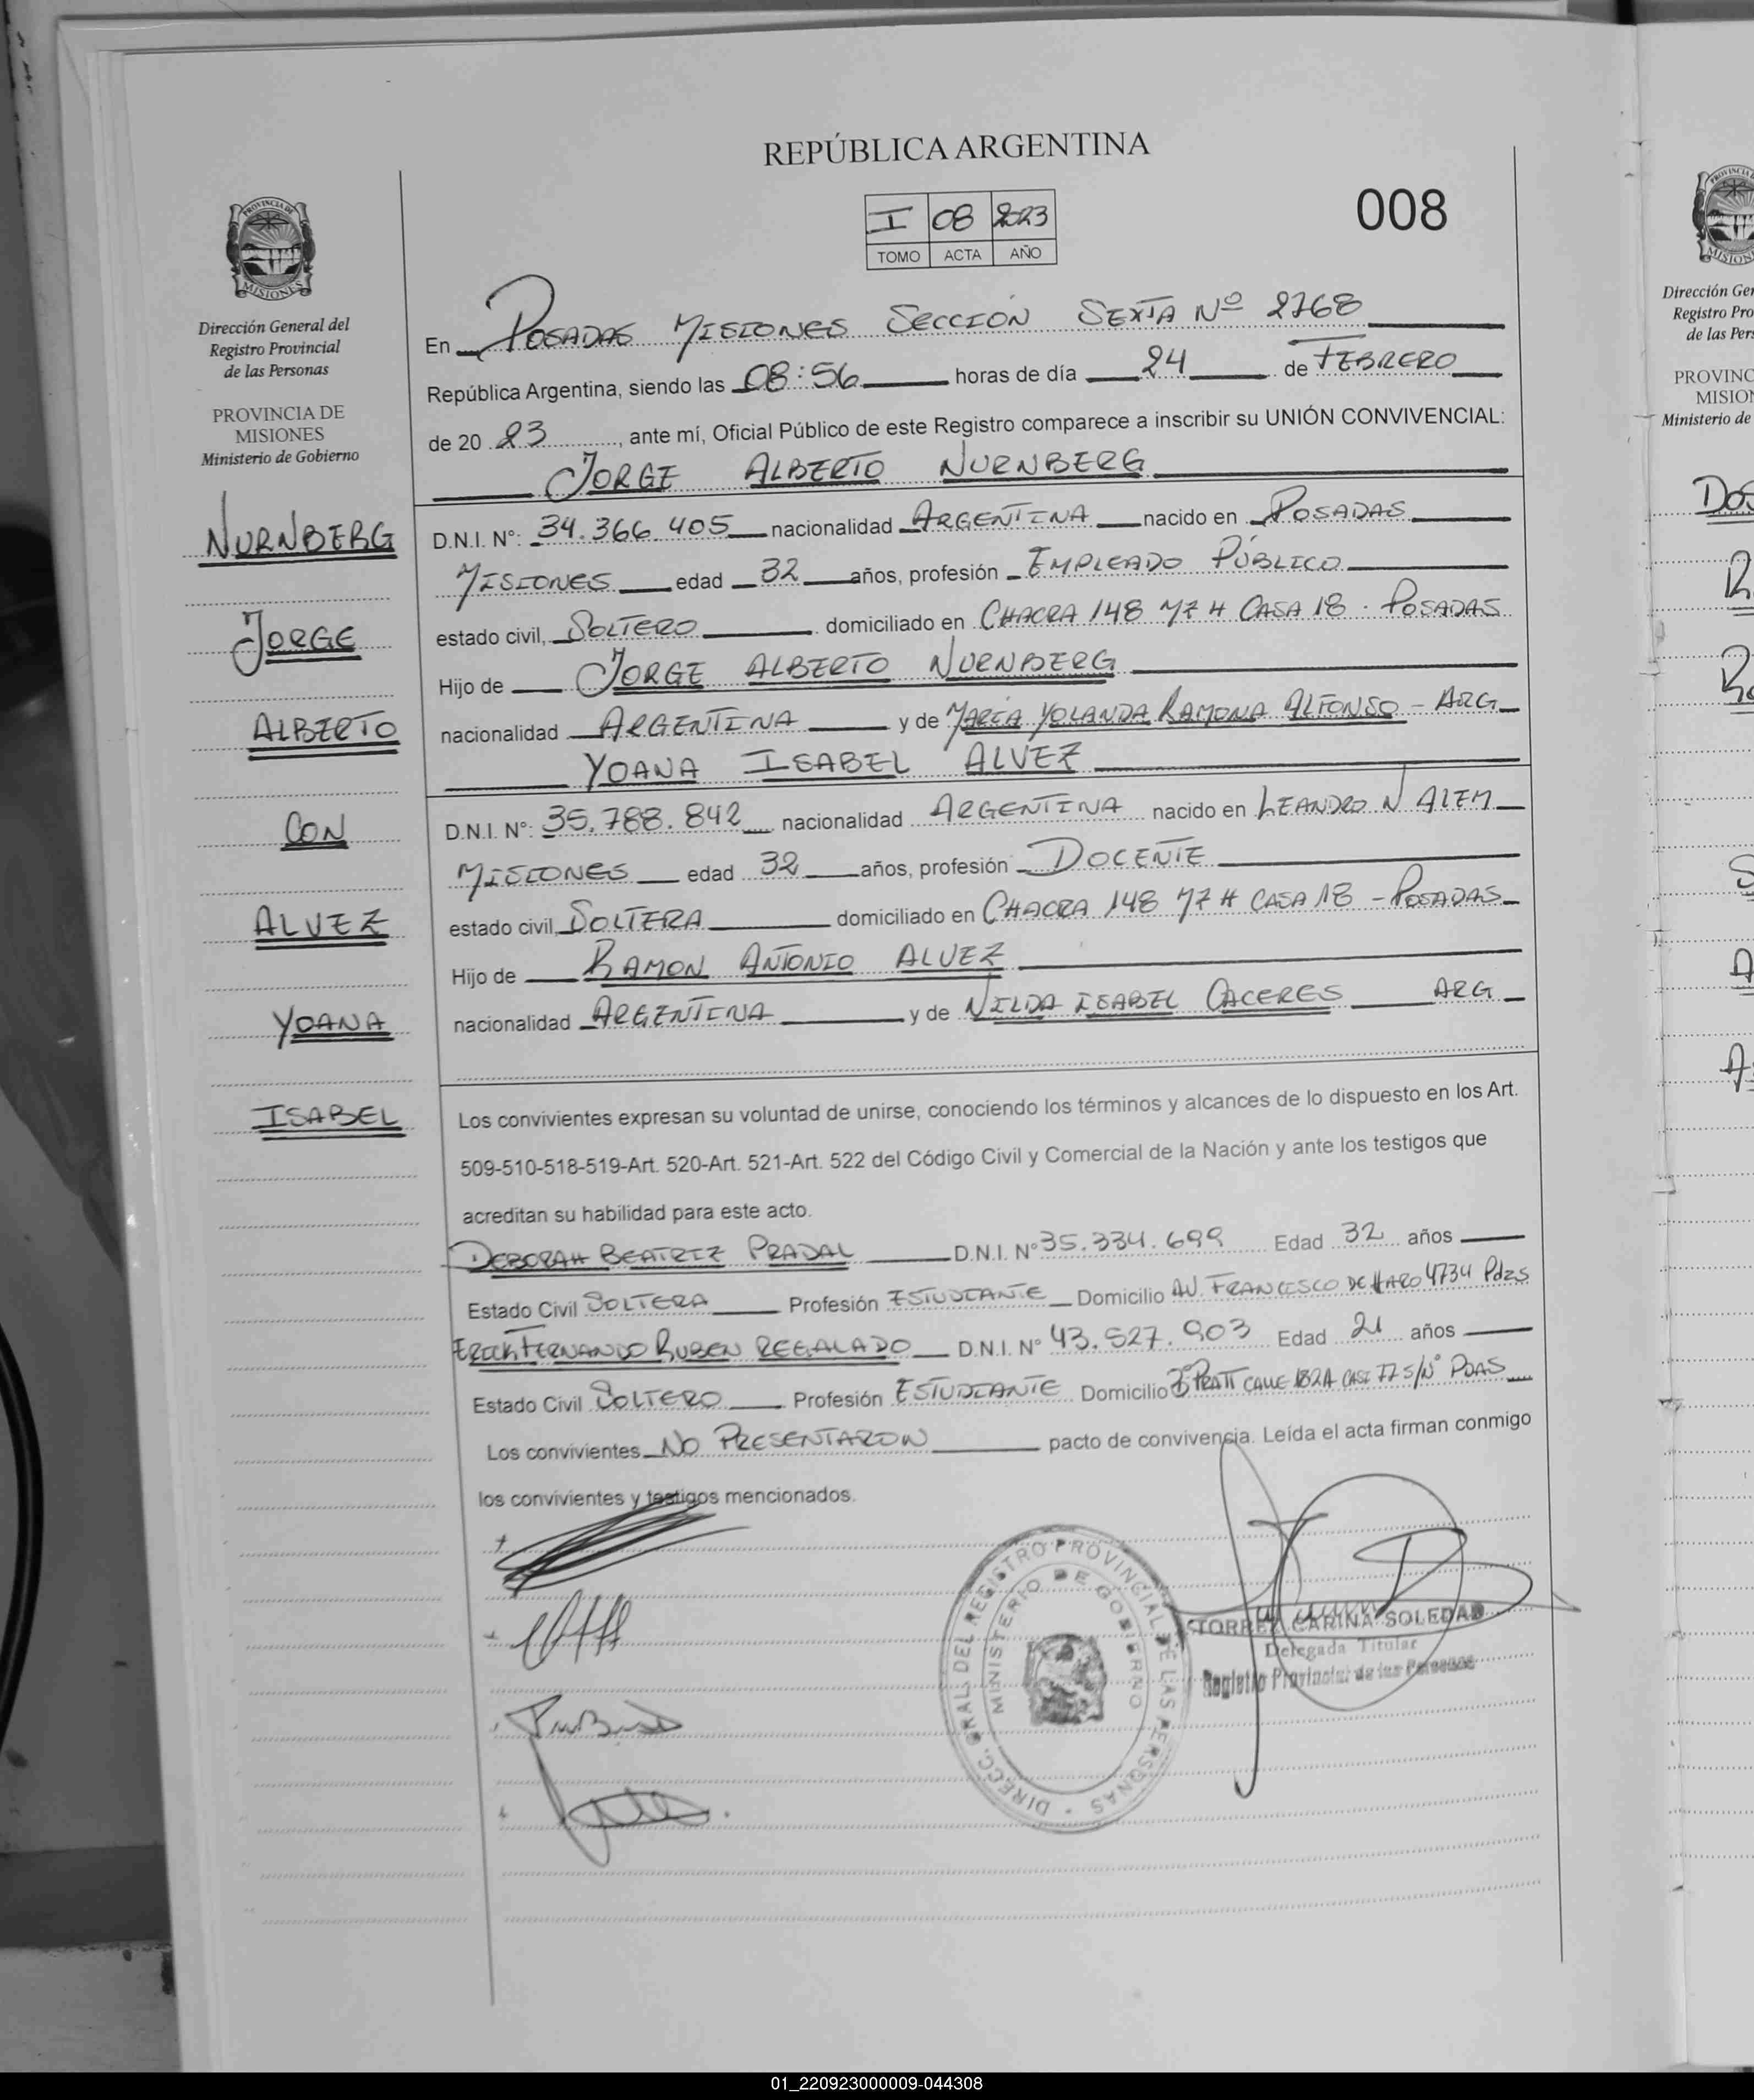 REPÚBLICA ARGENTINA
008
I 08 2023
TOMO ACTA AÑO
PROVINCIA DE
MISIONES
Dirección General del
Registro Provincial
de las Personas
PROVINCIA DE
MISIONES
Ministerio de Gobierno
NURNBERG
JORGE
ALBERTO
CON
ALVEZ
YOANA
ISABEL
En POSADAS MISIONES SECCIÓN SEXTA Nº 2768
República Argentina, siendo las 08:56 horas de día 24 de FEBRERO
de 20 23, ante mí, Oficial Público de este Registro comparece a inscribir su UNIÓN CONVIVENCIAL:
JORGE ALBERTO NURNBERG
D.N.I. N°: 34.366.405 nacionalidad ARGENTINA nacido en POSADAS
MISIONES edad 32 años, profesión EMPLEADO PÚBLICO
estado civil, SOLTERO domiciliado en CHACRA 148 MZ H CASA 18 - POSADAS
Hijo de JORGE ALBERTO NURNBERG
nacionalidad ARGENTINA y de MARÍA YOLANDA RAMONA ALFONSO - ARG
YOANA ISABEL ALVEZ
D.N.I. N°: 35.788.842 nacionalidad ARGENTINA nacido en LEANDRO N ALEM
MISIONES edad 32 años, profesión DOCENTE
estado civil, SOLTERA domiciliado en CHACRA 148 MZ H CASA 18 - POSADAS
Hijo de RAMON ANTONIO ALVEZ
nacionalidad ARGENTINA y de NILDA ISABEL CACERES ARG
Los convivientes expresan su voluntad de unirse, conociendo los términos y alcances de lo dispuesto en los Art.
509-510-518-519-Art. 520-Art. 521-Art. 522 del Código Civil y Comercial de la Nación y ante los testigos que
acreditan su habilidad para este acto.
DEBORAH BEATRIZ PRADAL D.N.I. N° 35.334.699 Edad 32 años
Estado Civil SOLTERA Profesión ESTUDIANTE Domicilio AV. FRANCISCO DE HARO 4734 Pdas
ERICK FERNANDO RUBEN REGALADO D.N.I. N° 43.527.903 Edad 21 años
Estado Civil SOLTERO Profesión ESTUDIANTE Domicilio Bº PRATT CALLE 182A CASI 77 S/Nº PDAS
Los convivientes NO PRESENTARON pacto de convivencia. Leída el acta firman conmigo
los convivientes y testigos mencionados.
DIRECC. GRAL. DEL REGISTRO PROVINCIAL DE LAS PERSONAS
MINISTERIO DE GOBIERNO
TORREZ CARINA SOLEDAD
Delegada Titular
Registro Provincial de las Personas
Dirección Ger
Registro Pro
de las Pers
PROVINC
MISION
Ministerio de
01_220923000009-044308